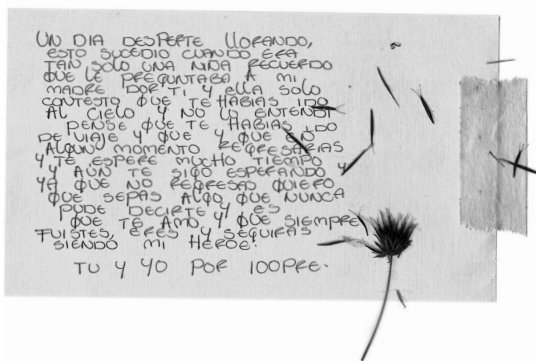 UN DIA DESPERTE LLORANDO,
ESTO SUCEDIO CUANDO ERA
TAN SOLO UNA NIÑA RECUERDO
QUE LE PREGUNTABA A MI
MADRE POR TI Y ELLA SOLO
CONTESTO QUE TE HABIAS IDO
AL CIELO Y NO LO ENTENDI
PENSE QUE TE HABIAS IDO
DE VIAJE Y QUE Y QUE EN
ALGUN MOMENTO REGRESARIAS
Y TE ESPERE MUCHO TIEMPO
Y AUN TE SIGO ESPERANDO Y
YA QUE NO REGRESAS QUIERO
QUE SEPAS ALGO QUE NUNCA
PUDE DECIRTE Y ES
QUE TE AMO Y QUE SIEMPRE
FUISTES, ERES Y SEGUIRAS
SIENDO MI HEROE!
TU Y YO POR 100PRE.